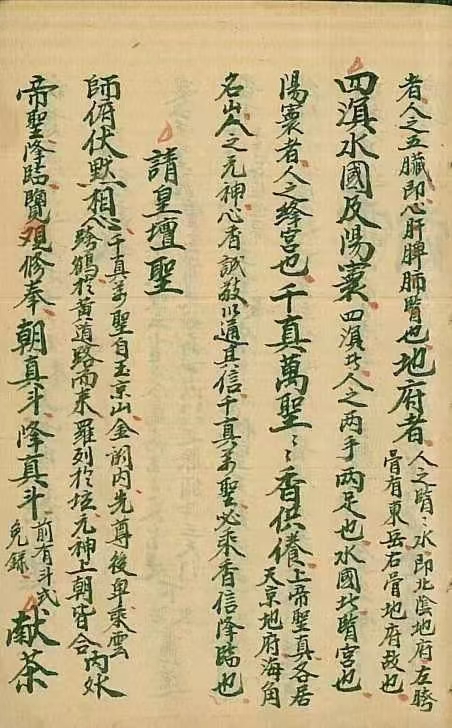 者人之五臟即心肝脾肺腎也地府者人之腎〻水即北陰地府左胯
骨有東岳右骨地府故也
四瀆水國及陽寰四瀆者人之两手两足也水國者腎宫也
陽寰者人之絳宮也千真萬聖〻〻香供養上帝聖真各居
天京地府海角
名山人之元神心香誠敬以通其信千真萬聖必乘香信降臨也
請皇壇聖
師俯伏默相念千真萬聖自玉京山金闕内先尊後卑乘雲
跨鶴於黄道路而来羅列於壇元神上朝皆合内外
帝聖降臨覽观修奉朝真斗降真斗前有斗式
免録献茶